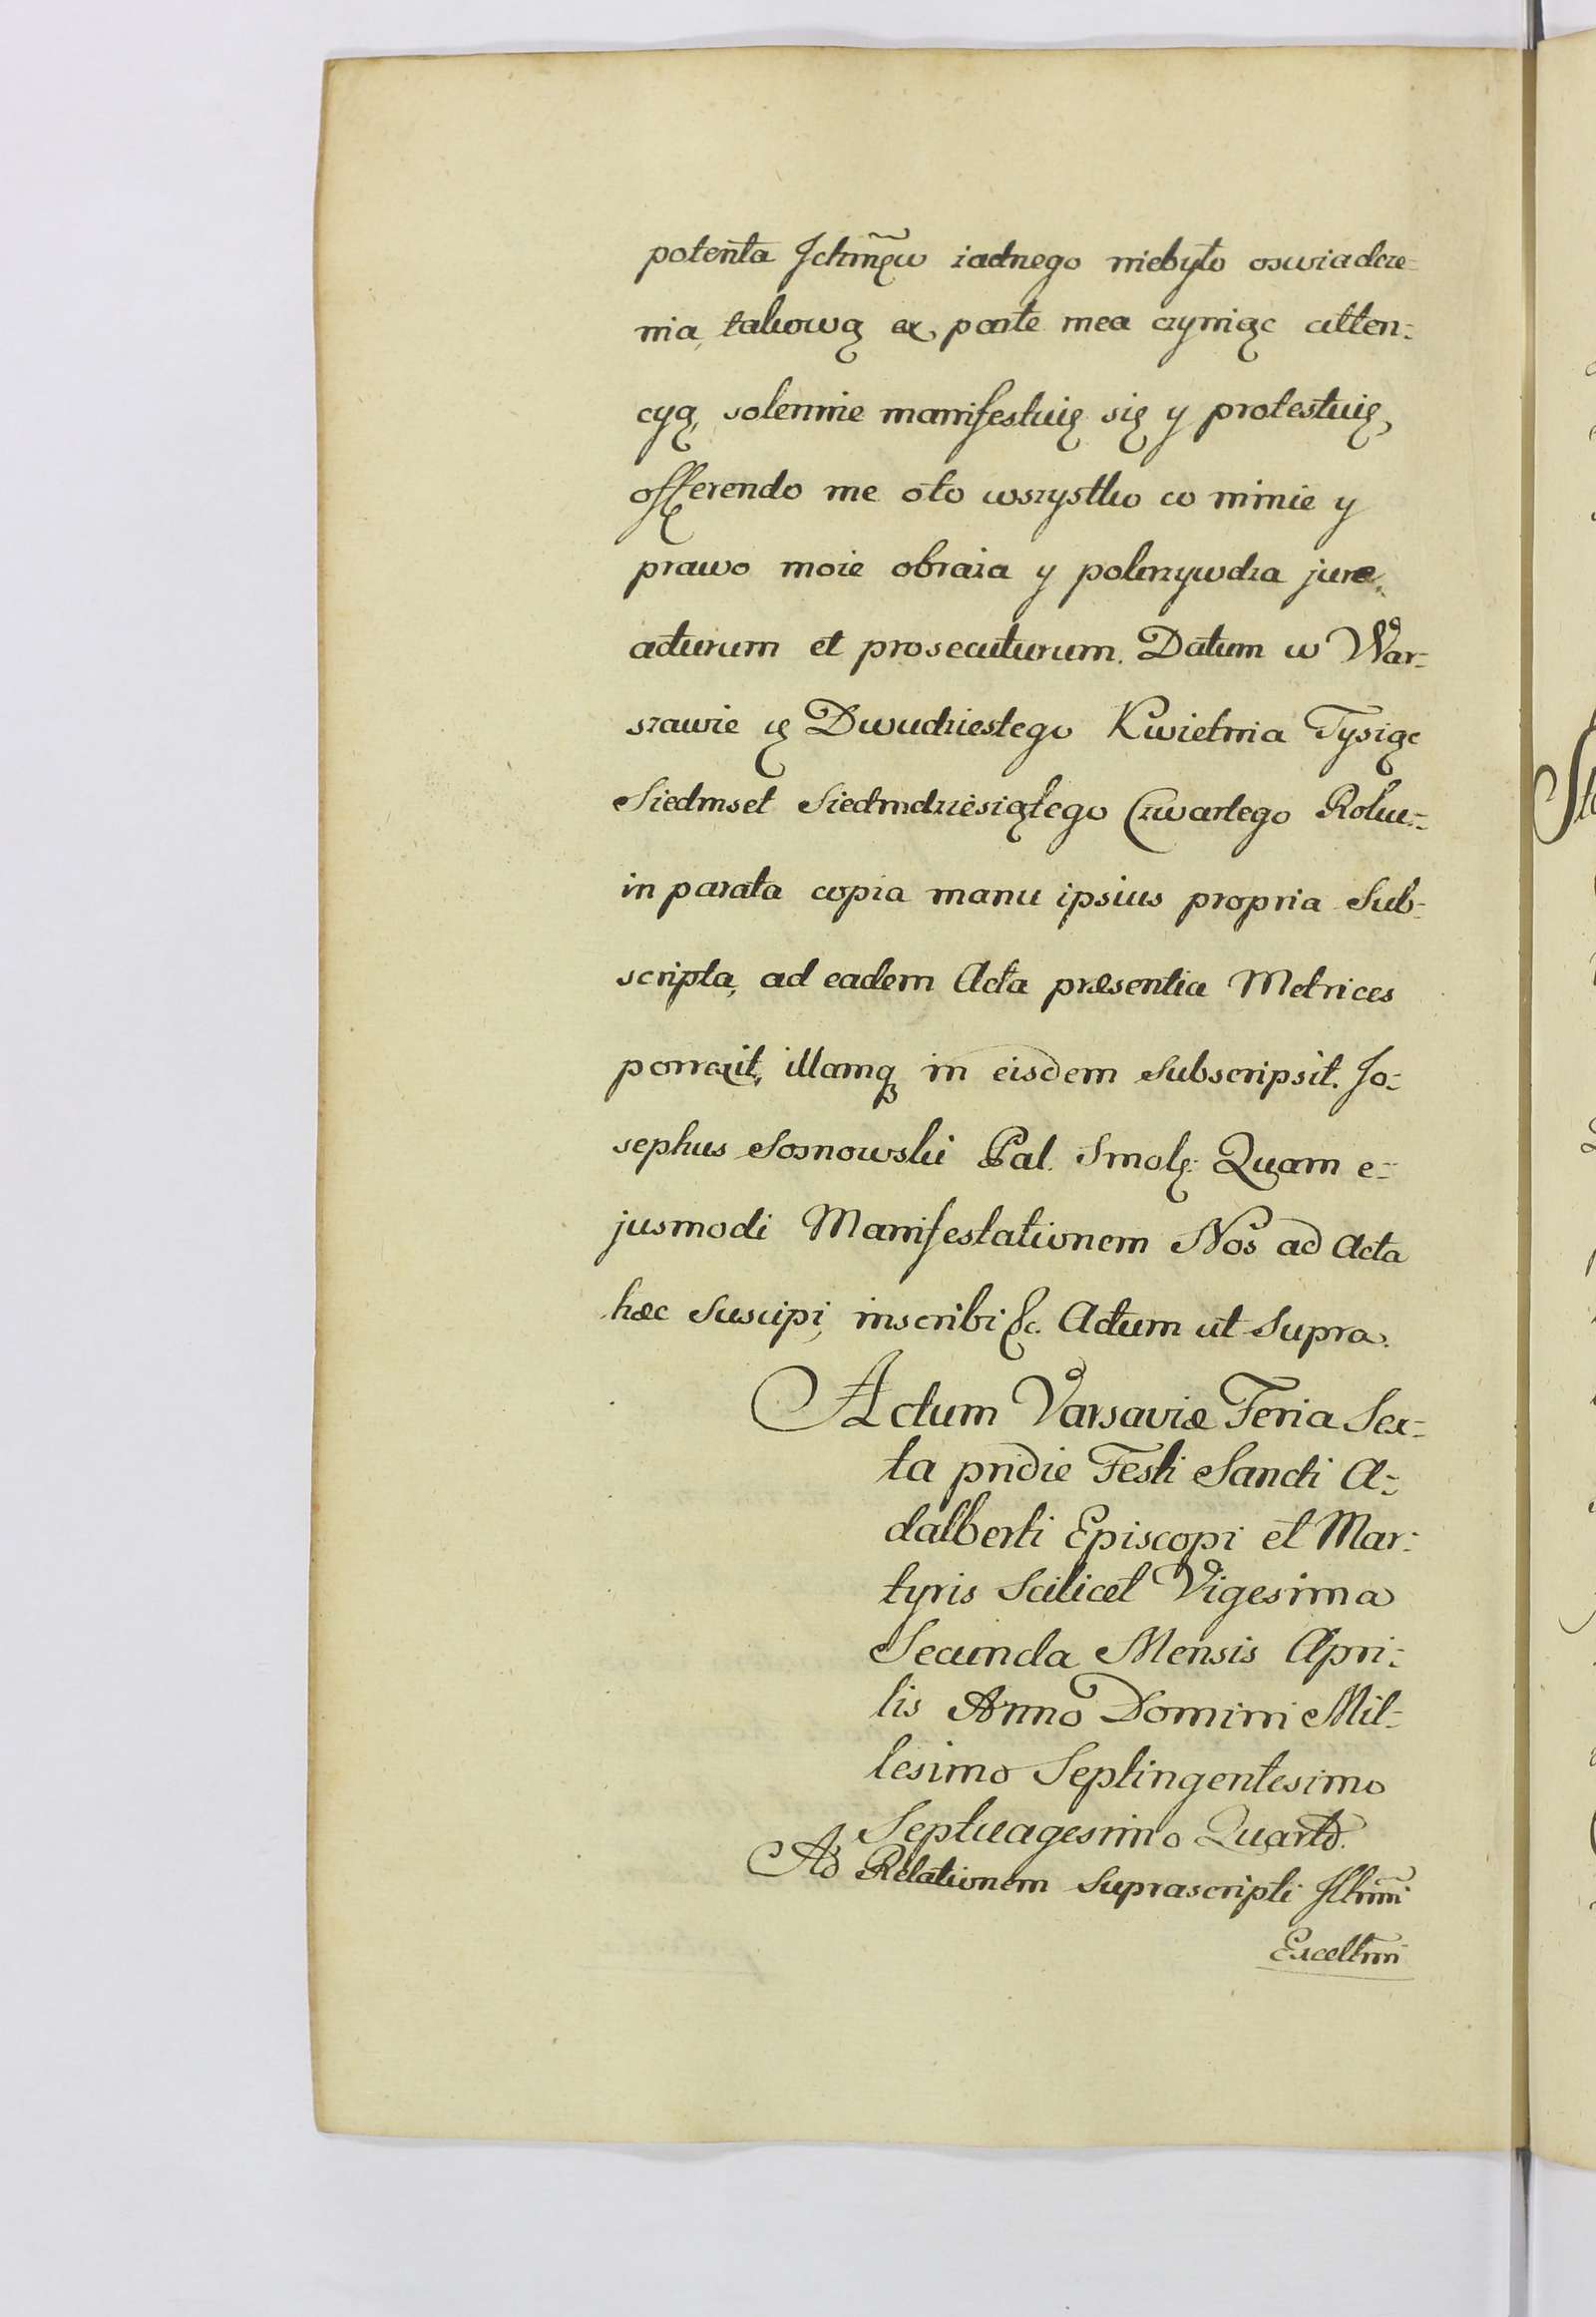 potenta Jchmęw żadnego niebyło oswiadcze-
nia, takową ex parte mea czyniąc atten-
cyą, solennie manifestuię się y protestuię,
offerendo me oto wszystko co mnie y
prawo moie obraża y pokrzywdza jure,
acturum et prosecuturum. Datum w War-
szawie Dwudziestego Kwietnia Tysiąc
Siedmset Siedmdziesiątego Czwartego Roku:-
in parata copia manu ipsius propria Sub-
scripta, ad eadem Acta præsentia Metrices
porrexit, illamq in eisdem subscripsit. Jo-
sephus Sosnowski Pal. Smolę: Quam e-
jusmodi Manifestationem Nos ad Acta
hæc Suscipi, inscribi &c. Actum ut Supra.
Actum Varsaviæ Feria Sex-
ta pridie Festi Sancti A-
dalberti Episcopi et Mar-
tyris Scilicet Vigesima
Secunda Mensis Apri-
lis Anno Domini Mil-
lesimo Septingentesimo
Septuagesimo Quarto.
Ad Relationem suprascripti Jllmi
Excellmi